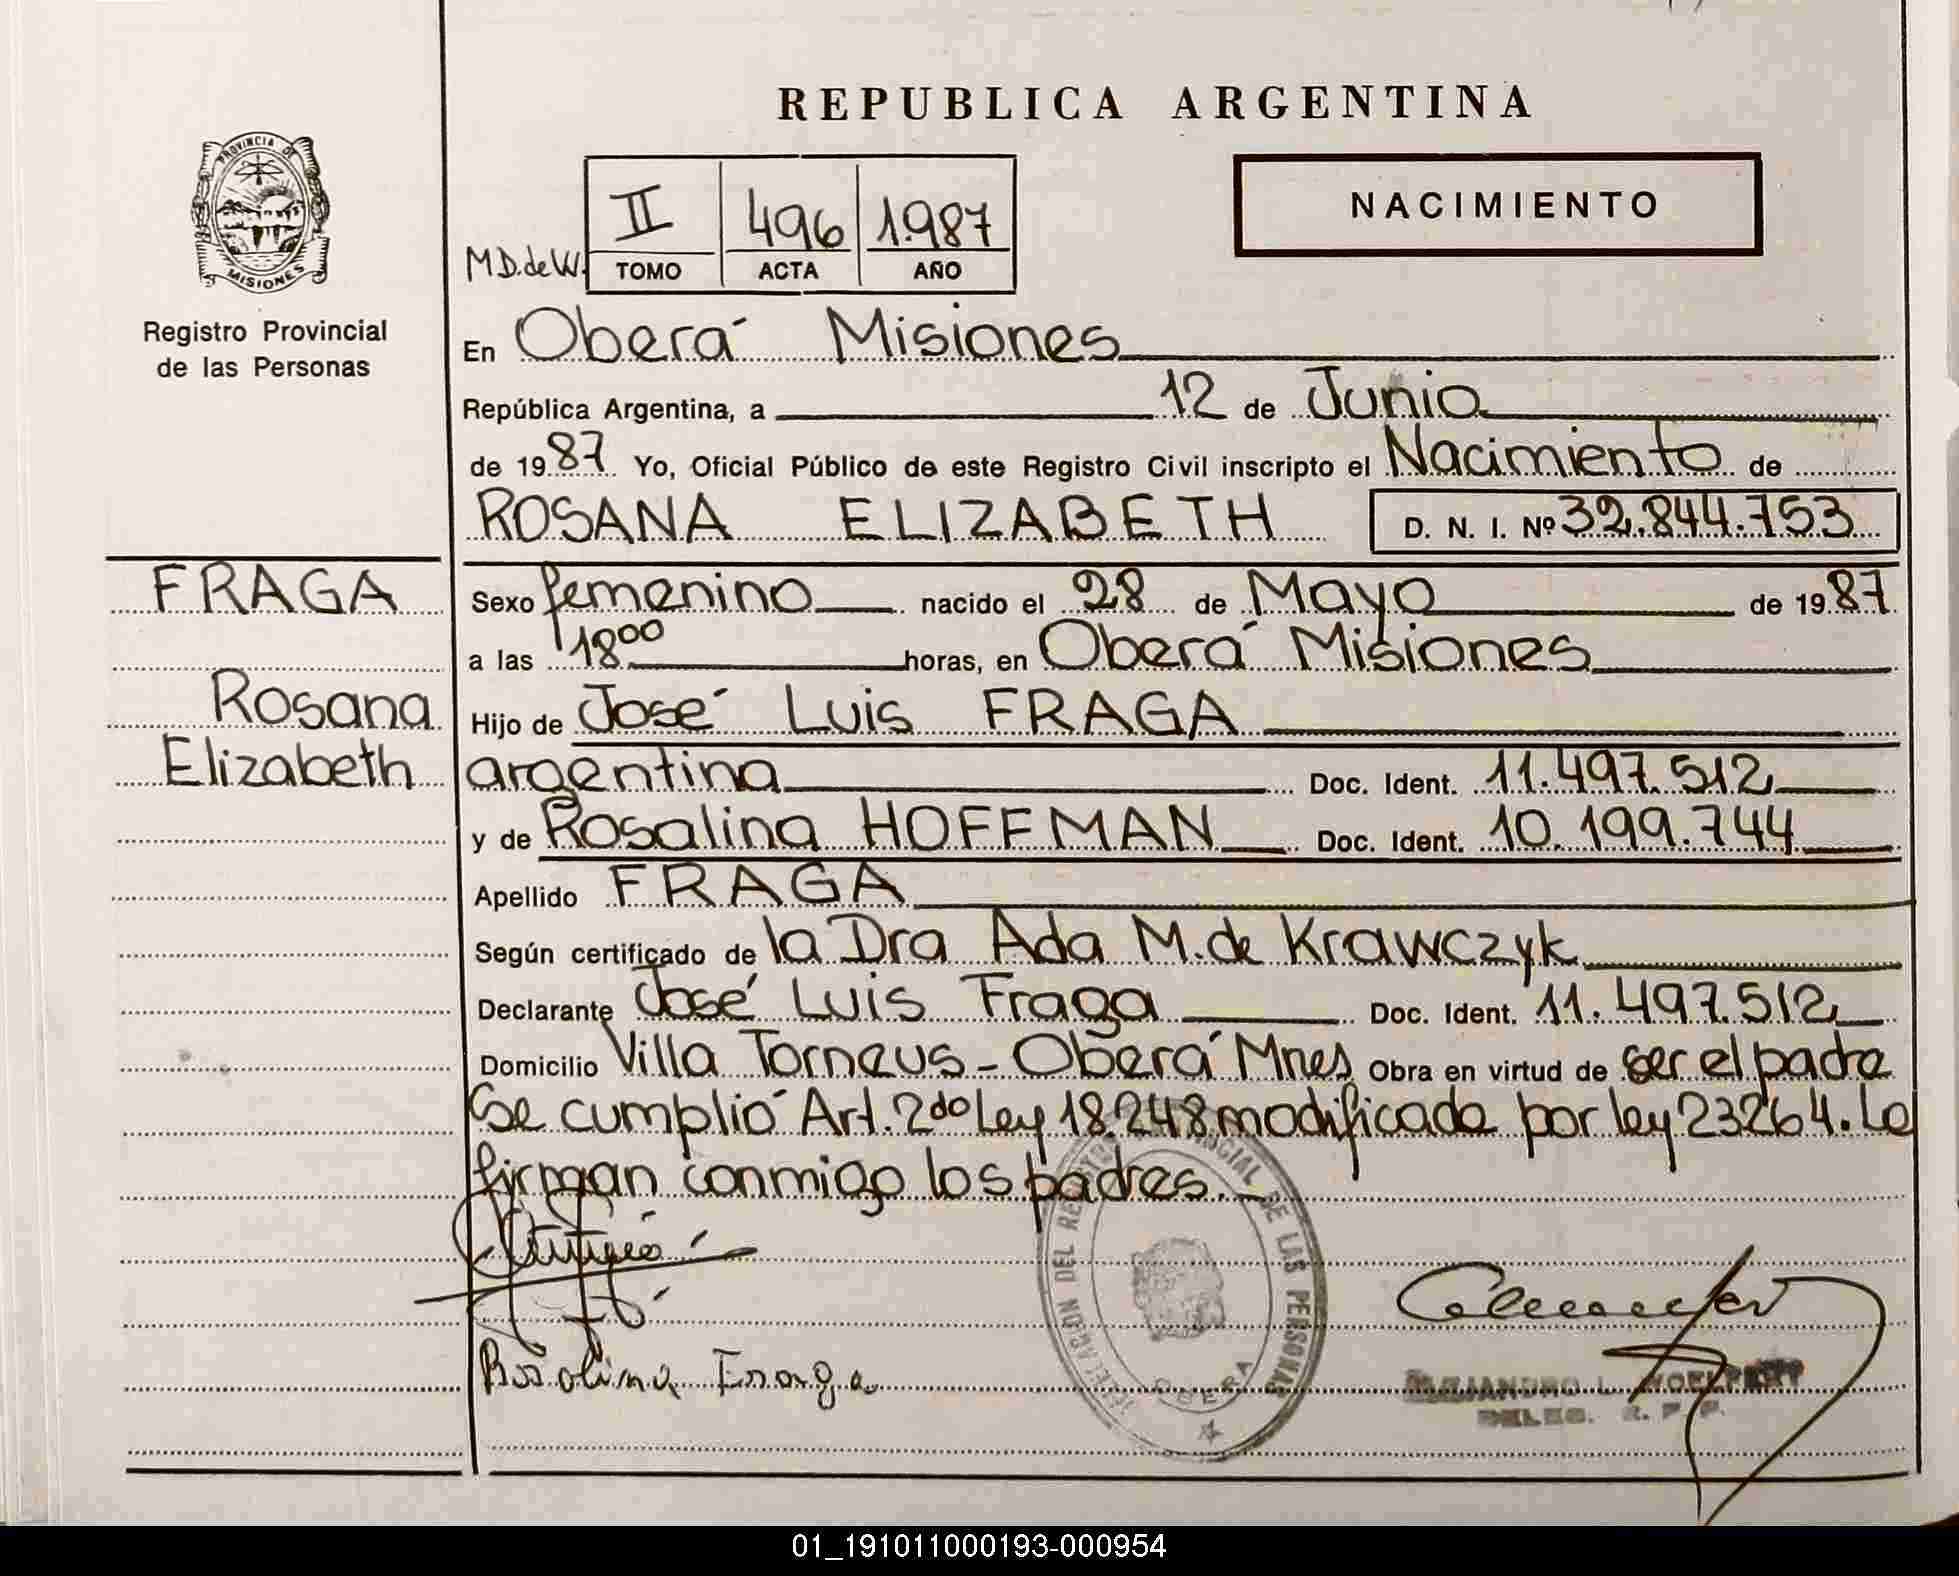 REPUBLICA ARGENTINA
PROVINCIA DE
MISIONES
Registro Provincial
de las Personas
NACIMIENTO
M D. de W.
II 496 1987
TOMO ACTA AÑO
En Oberá Misiones
República Argentina, a 12 de Junio
de 1987 Yo, Oficial Público de este Registro Civil inscripto el Nacimiento de
ROSANA ELIZABETH D. N. I. Nº 32.844.753
FRAGA
Rosana
Elizabeth
Sexo femenino nacido el 28 de Mayo de 1987
a las 18⁰⁰ horas, en Oberá Misiones
Hijo de José Luis FRAGA
argentina Doc. Ident. 11.497.512
y de Rosalina HOFFMAN Doc. Ident. 10.199.744
Apellido FRAGA
Según certificado de la Dra Ada M. de Krawczyk
Declarante José Luis Fraga Doc. Ident. 11.497.512
Domicilio Villa Torneus - Oberá Mnes Obra en virtud de ser el padre
Se cumplió Art. 2do Ley 18.248 modificada por ley 23264. Lo
firman conmigo los padres.
DEL REGISTRO PROVINCIAL DE LAS PERSONAS
OBERA
Rosolina Fraga
ALEJANDRO L.
DELEG. R. P. P.
01_191011000193-000954